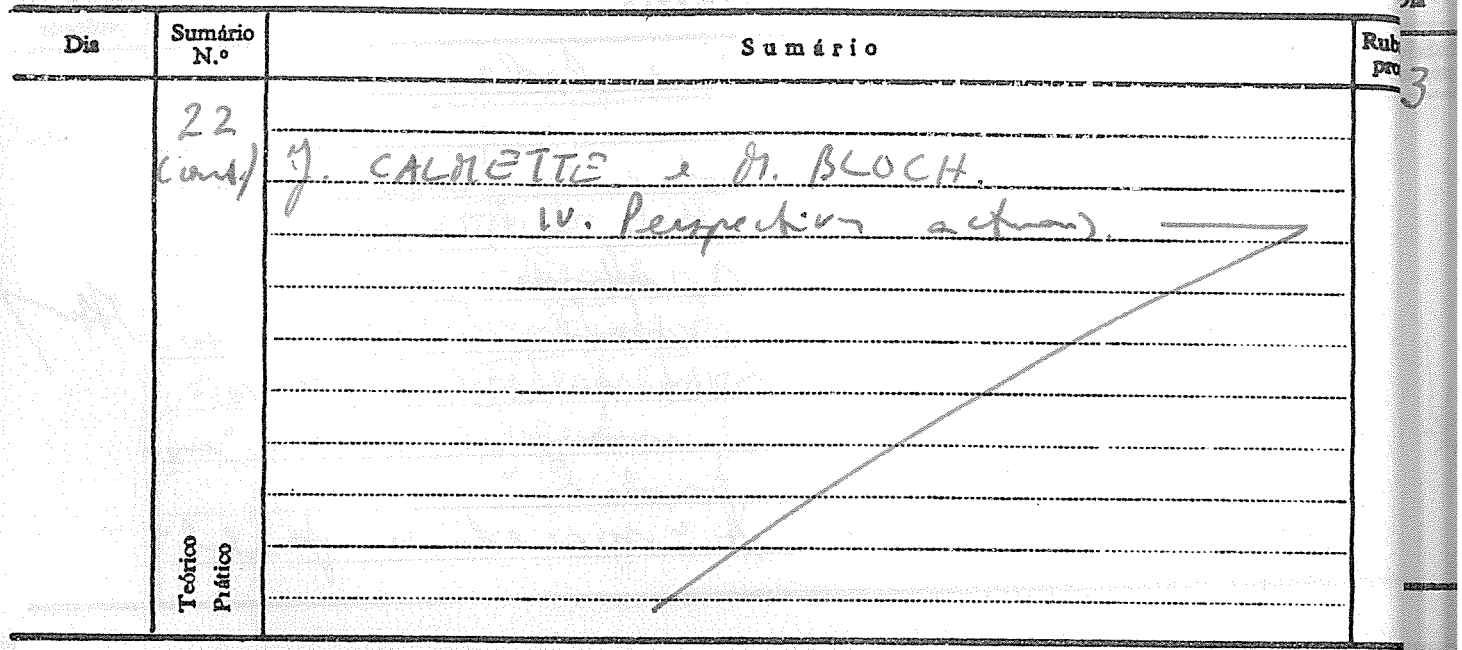 Dia
Sumário N.º
Sumário
Rub
pro
3
22
(cont.) J. CALMETTE e M. BLOCH.
IV. Perspectivas actuais.
Teórico
Prático